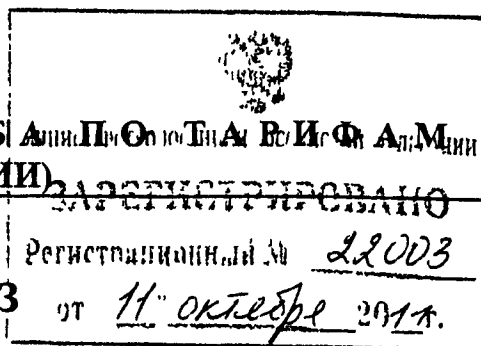 БА ПО ТАРИФАМ
ИИ)
ЗАРЕГИСТРИРОВАНО
Регистрационный № 22003
З от "11" октября 2011г.